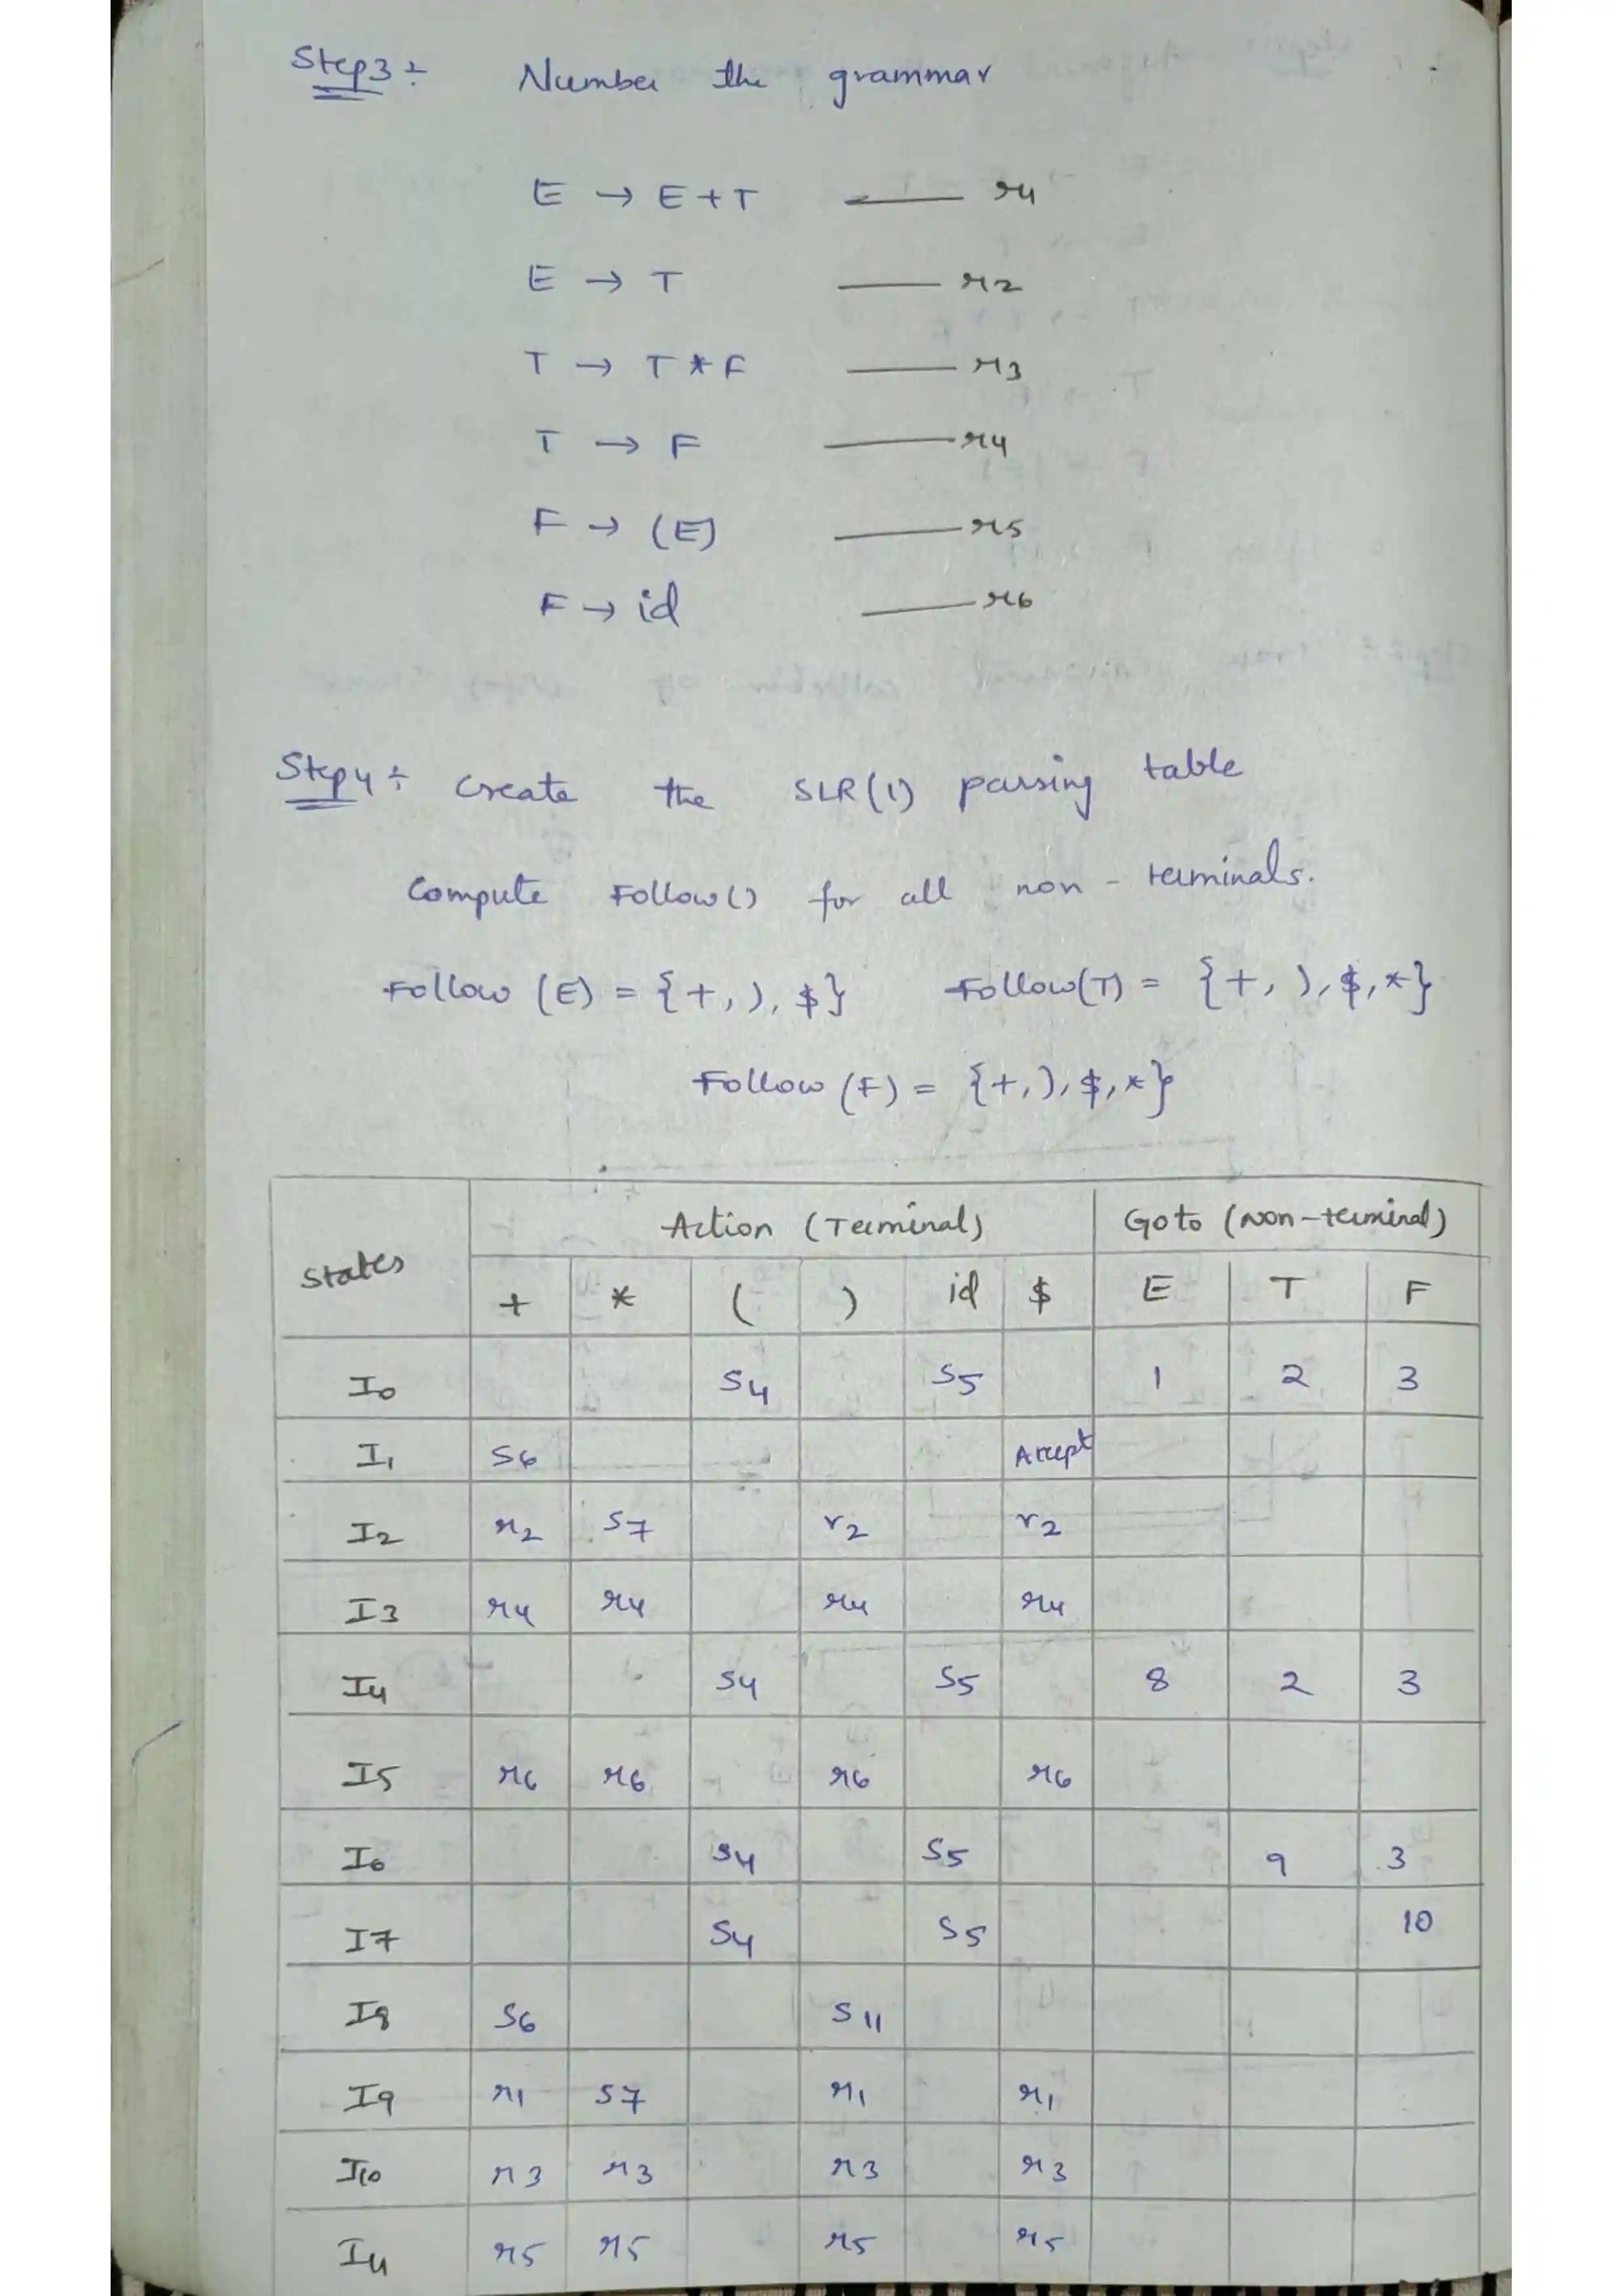 Step3 :- Number the grammar
E → E+T —— r4
E → T —— r2
T → T * F —— r3
T → F —— r4
F → (E) —— r5
F → id —— r6
Step4 :- Create the SLR(1) parsing table
Compute Follow() for all non - terminals.
Follow (E) = {+, ), $} Follow(T) = {+, ), $, *}
Follow (F) = {+, ), $, *}
States Action (Terminal) Goto (Non-terminal)
+ * ( ) id $ E T F
I0 S4 S5 1 2 3
I1 S6 Accept
I2 r2 S7 r2 r2
I3 r4 r4 r4 r4
I4 S4 S5 8 2 3
I5 r6 r6 r6 r6
I6 S4 S5 9 3
I7 S4 S5 10
I8 S6 S11
I9 r1 S7 r1 r1
I10 r3 r3 r3 r3
I11 r5 r5 r5 r5